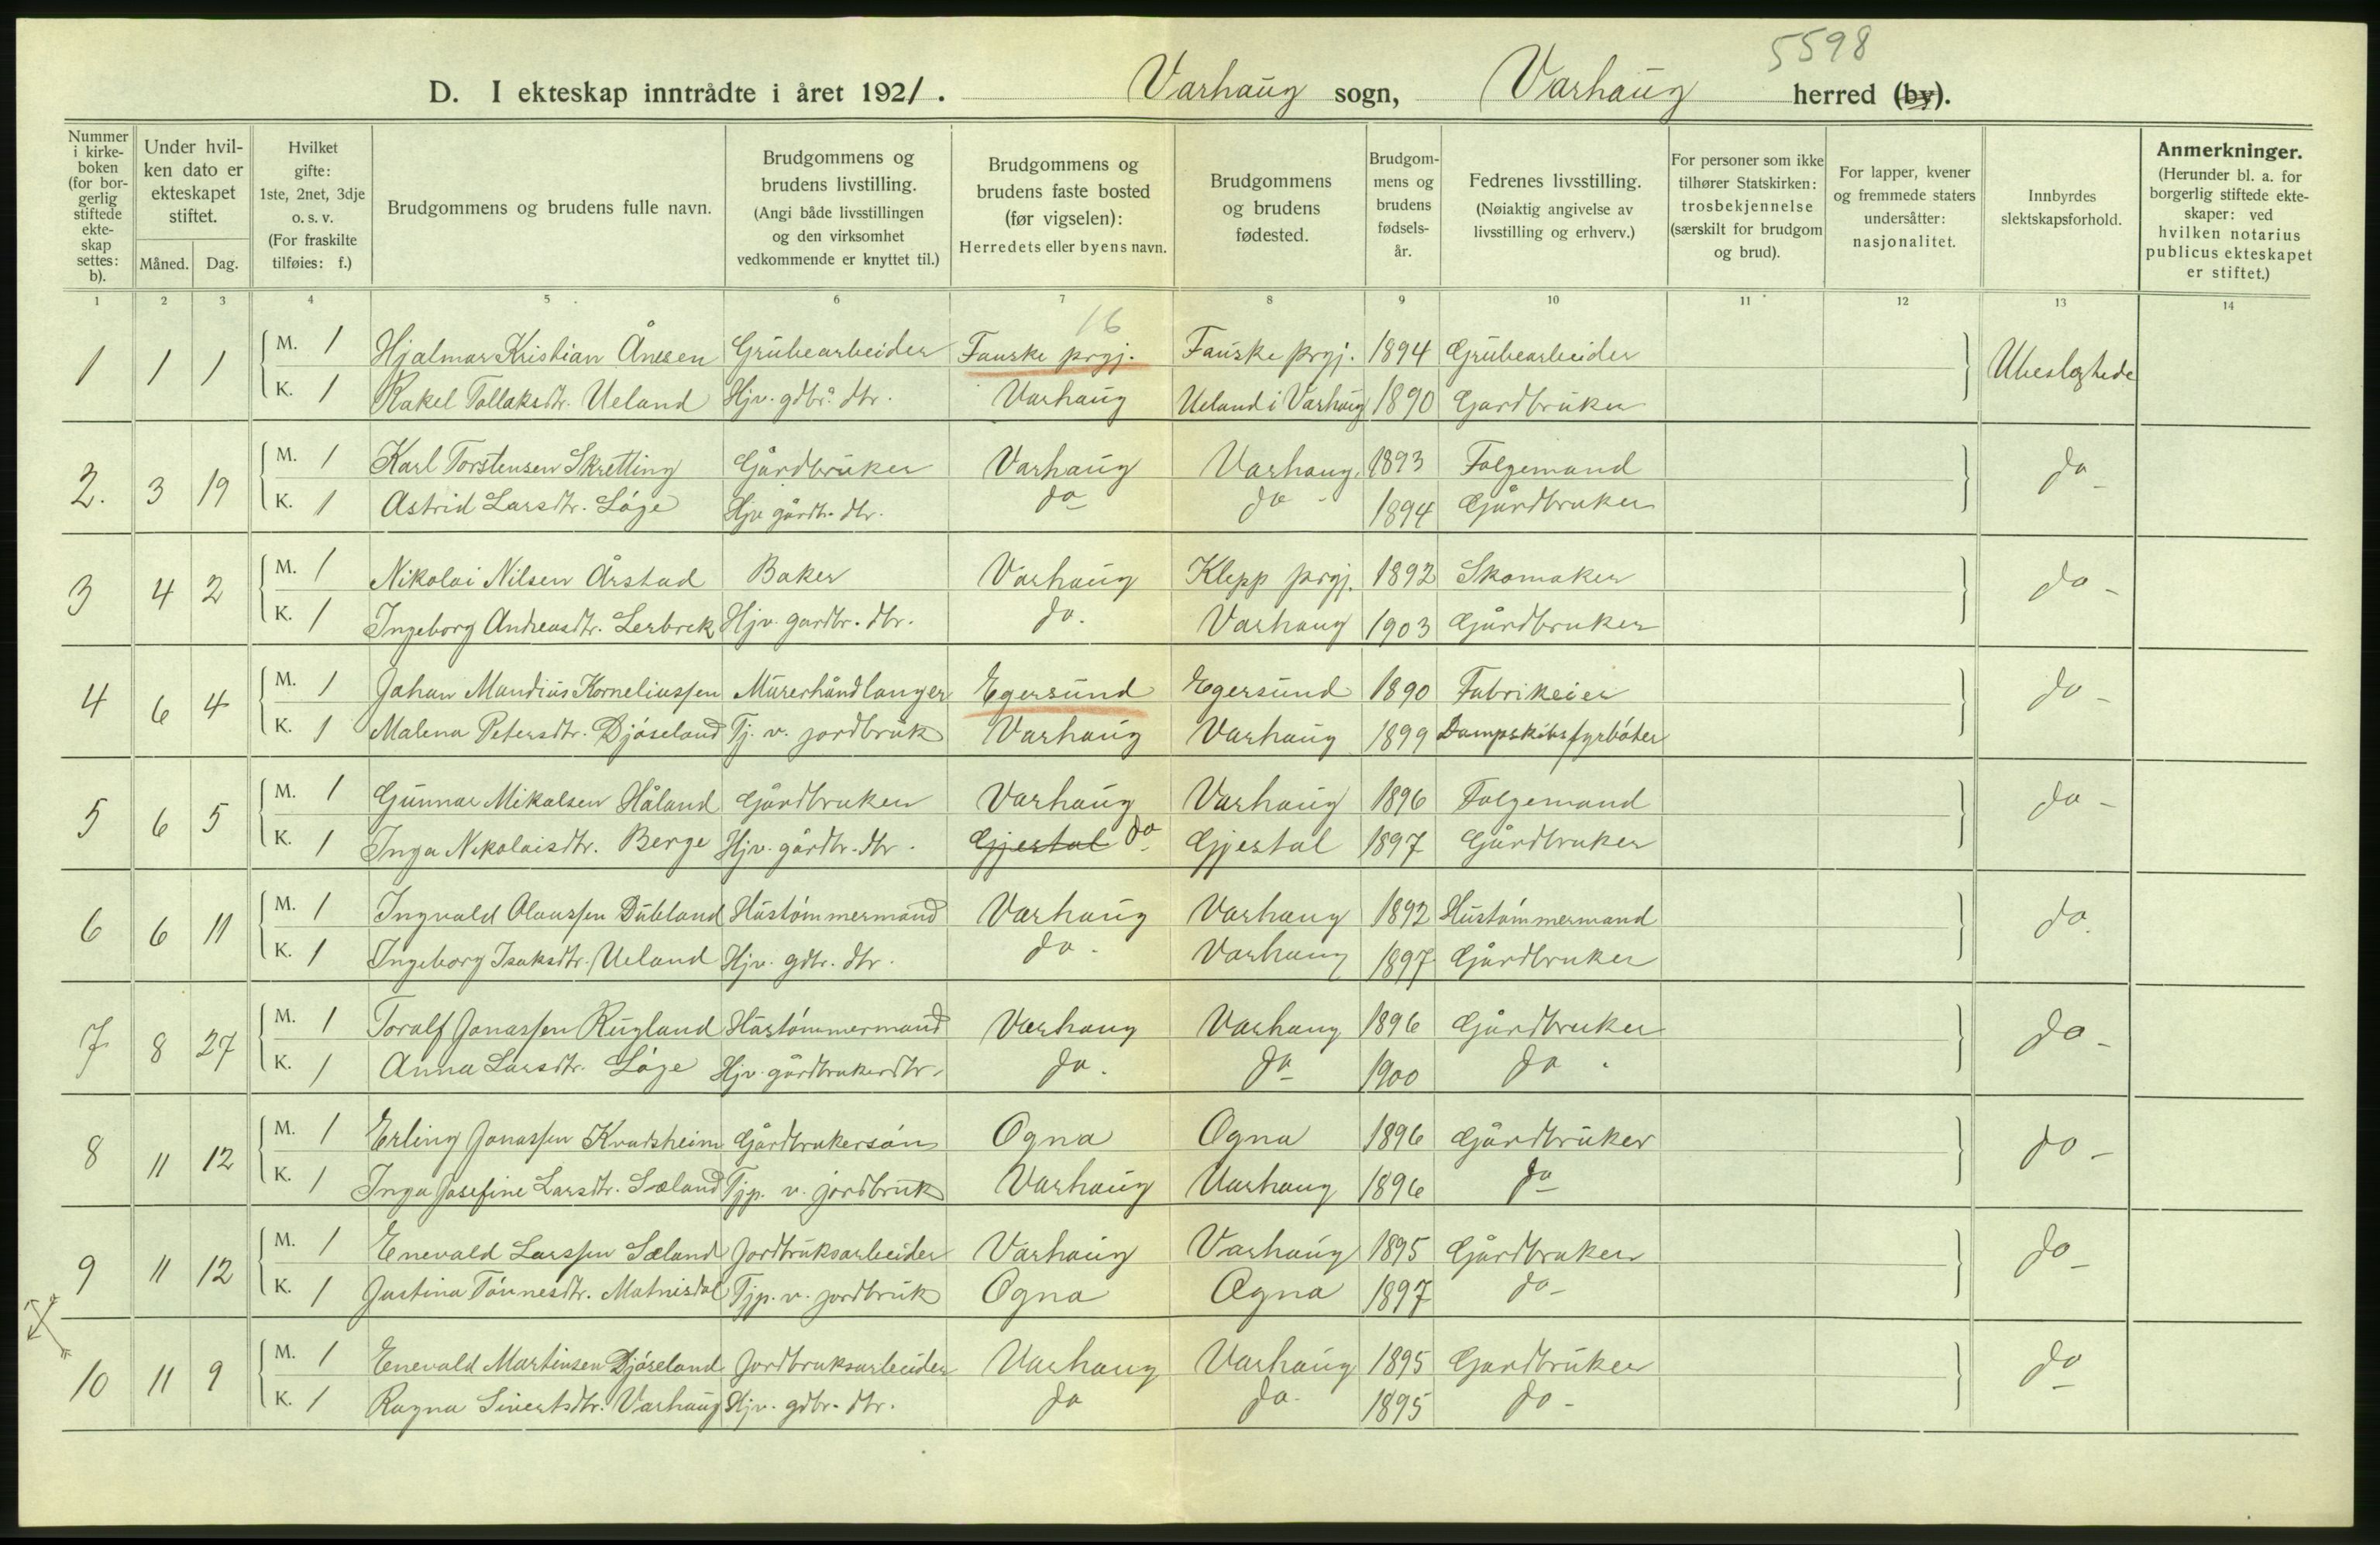 5598
D. I ekteskap inntrådte i året 1921. Varhaug sogn, Varhaug herred (by).
Nummer i kirke-boken (for bor-gerlig stiftede ekte-skap settes: b).
Under hvil-ken dato er ekteskapet stiftet.
Måned. Dag.
Hvilket gifte: 1ste, 2net, 3dje o. s. v. (For fraskilte tilføies: f.)
Brudgommens og brudens fulle navn.
Brudgommens og brudens livstilling. (Angi både livsstillingen og den virksomhet vedkommende er knyttet til.)
Brudgommens og brudens faste bosted (før vigselen): Herredets eller byens navn.
Brudgommens og brudens fødested.
Brudgom-mens og brudens fødsels-år.
Fedrenes livsstilling. (Nøiaktig angivelse av livsstilling og erhverv.)
For personer som ikke tilhører Statskirken: trosbekjennelse (særskilt for brudgom og brud).
For lapper, kvener og fremmede staters undersåtter: nasjonalitet.
Innbyrdes slektskapsforhold.
Anmerkninger. (Herunder bl. a. for borgerlig stiftede ekte-skaper: ved hvilken notarius publicus ekteskapet er stiftet.)
1 2 3 4 5 6 7 8 9 10 11 12 13 14
16
1 1 1 M. 1 Hjalmar Kristian Ånesen Grubearbeider Fauske prgj. Fauske prgj. 1894 Grubearbeider Ubeslægtede
K. 1 Rakel Tollaksdtr. Ueland Hjv. gdbr. dtr. Varhaug Ueland i Varhaug 1890 Gardbruker
2. 3 19 M. 1 Karl Torstensen Skretting Gårdbruker Varhaug Varhaug. 1893 Folgemand do
K. 1 Astrid Larsdtr. Løge Hjv gårdbr. dtr. do do - 1894 Gårdbruker
3 4 2 M. 1 Nikolai Nilsen Årstad Baker Varhaug Klepp prgj. 1892 Skomaker do -
K. 1 Ingeborg Andreasdtr. Lerbrek Hjv. gardbr. dtr. do. Varhaug 1903 Gårdbruker
4 6 4 M. 1 Johan Mandius Korneliussen Murerhåndlanger Egersund Egersund 1890 Fabrikeier do -
K. 1 Malena Petersdtr. Djøseland Tj. v. jordbruk Varhaug Varhaug 1899 Dampskibsfyrbøter
5 6 5 M. 1 Gunnar Mikalsen Håland Gårdbruker Varhaug Varhaug 1896 Folgemand do -
K. 1 Inga Nikolaisdtr. Berge Hjv. gårdbr. dtr. Gjestal do Gjestal 1897 Gårdbruker
6 6 11 M. 1 Ingvald Olaussen Dubland Hustømmermand Varhaug Varhaug 1892 Hustømmermand do.
K. 1 Ingeborg Isaksdtr. Ueland Hjv. gdbr. dtr. do - Varhaug 1897 Gårdbruker
7 8 27 M. 1 Toralf Jonassen Rugland Hustømmermand Varhaug Varhaug 1896 Gårdbruker do -
K. 1 Anna Larsdtr. Løge Hjv. gårdbrukerdtr. do. do 1900 do.
8 11 12 M. 1 Erling Jonassen Kvadsheim Gårdbrukersøn Ogna Ogna 1896 Gårdbruker do -
K. 1 Inga Josefine Larsdtr. Sæland Tjp. v. jordbruk Varhaug Varhaug 1896 do
9 11 12 M. 1 Enevald Larssen Sæland Jordbruksarbeider Varhaug Varhaug 1895 Gårdbruker do -
K. 1 Justina Tønnesdtr. Matnisdal Tjp. v. jordbruk Ogna Ogna 1897 do -
10 11 9 M. 1 Enevald Martinsen Djøseland Jordbruksarbeider Varhaug Varhaug 1895 Gardbruker do
K. 1 Ragna Sivertsdtr. Varhaug Hjv. gdbr. dtr. do do. 1895 do -